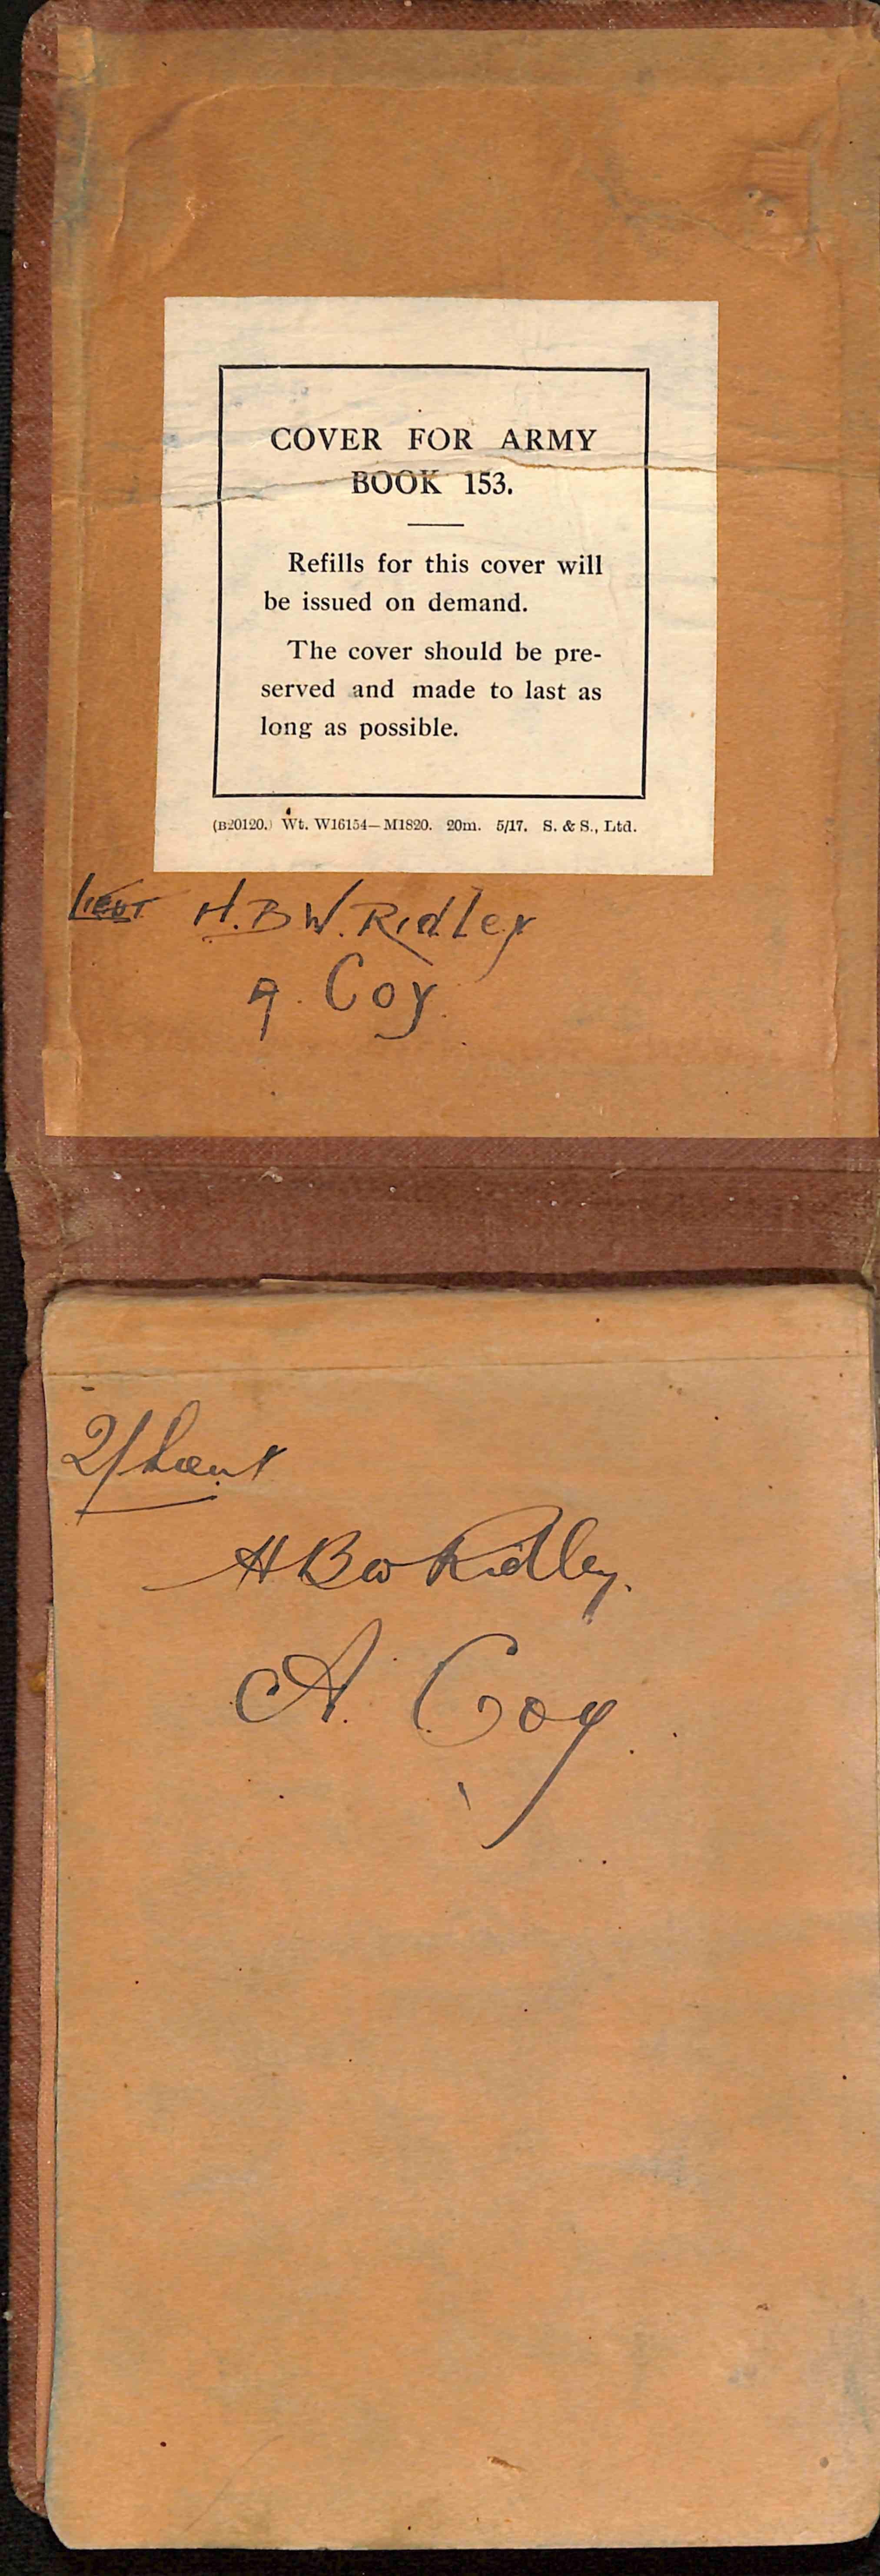 COVER FOR ARMY
BOOK 153.
Refills for this cover will
be issued on demand.
The cover should be pre-
served and made to last as
long as possible.
(B20120.) Wt. W16154—M1820. 20m. 5/17. S. & S., Ltd.
LIEUT H.B.W. Ridley
A. Coy.
2/Lieut
HBW Ridley.
A. Coy.